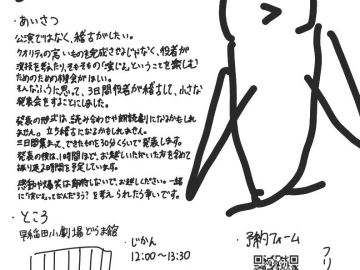 ・あいさつ
公演ではなく、稽古がしたい。
クオリティの高いものを完成させるじゃなく、役者が
演技を考えたり、そもそもの「演じる」ということを楽しむ
ための機会がほしい。
そんなふうに思って、3日間役者が稽古して、小さな
発表会をすることにしました。
発表の形式は、読み合わせや朗読劇になるかもしれ
ません。立ち稽古になるかもしれません。
三日間集まって、できたものを30分くらいで発表します。
発表の後は、1時間ほど、お越しいただいた方を含めて
振り返る時間を予定しています。
感動や爆笑は期待しないで、お越しください。一緒
に「演じるってなんだろう？」を考えられたら幸いです。
・ところ
早稲田小劇場どらま館
・じかん
12:00〜13:30
・予約フォーム
フリ